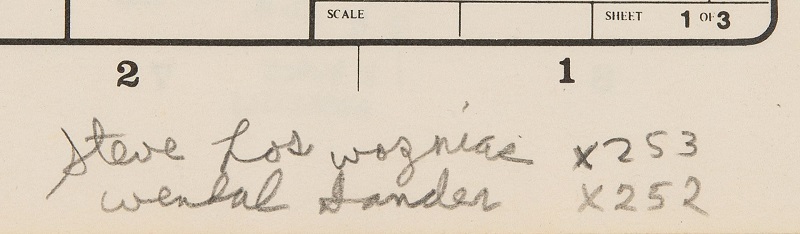 SCALE SHEET 1 OF 3
2 1
Steve Los wozniac x253
wendal Sander x252